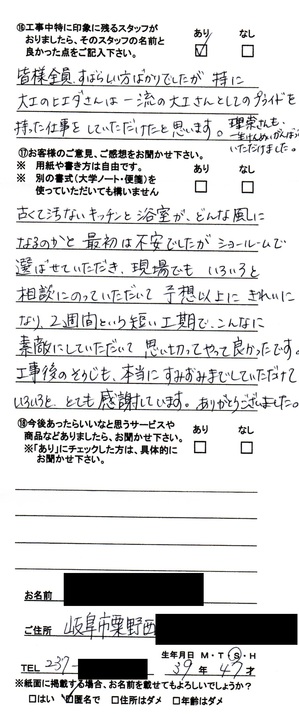 ⑯工事中特に印象に残るスタッフが あり なし
おりましたら、そのスタッフの名前と
良かった点をご記入下さい。
皆様全員、すばらしい方ばかりでしたが 特に
大工のヒエダさんは一流の大工さんとしてのプライドを
持った仕事をしていただけたと思います。
理栄さんも、
一生けんめいがんばって
いただけました。
⑰お客様のご意見、ご感想をお聞かせ下さい。
※ 用紙や書き方は自由です。 あり なし
※ 別の書式(大学ノート・便箋)を
使っていただいても構いません
古くて汚ないキッチンと浴室が、どんな風に
なるのかと 最初は不安でしたが ショールームで
選ばせていただき、現場でも いろいろと
相談にのっていただいて 予想以上に きれいに
なり、2週間という短い工期で、こんなに
素敵にしていただいて 思い切ってやって良かったです。
工事後のそうじも、本当に すみずみまでしていただけて
いろいろと、とても感謝しています。ありがとうございました。
⑱今後あったらいいなと思うサービスや あり なし
商品などありましたら、お聞かせ下さい。
※「あり」にチェックした方は、具体的に
お聞かせ下さい。
お名前
ご住所 岐阜市粟野西
生年月日 M・T・S・H
TEL 237- 39年 47才
※紙面に掲載する場合、お名前を載せてもよろしいでしょうか?
□はい 匿名で □住所はダメ □年齢はダメ